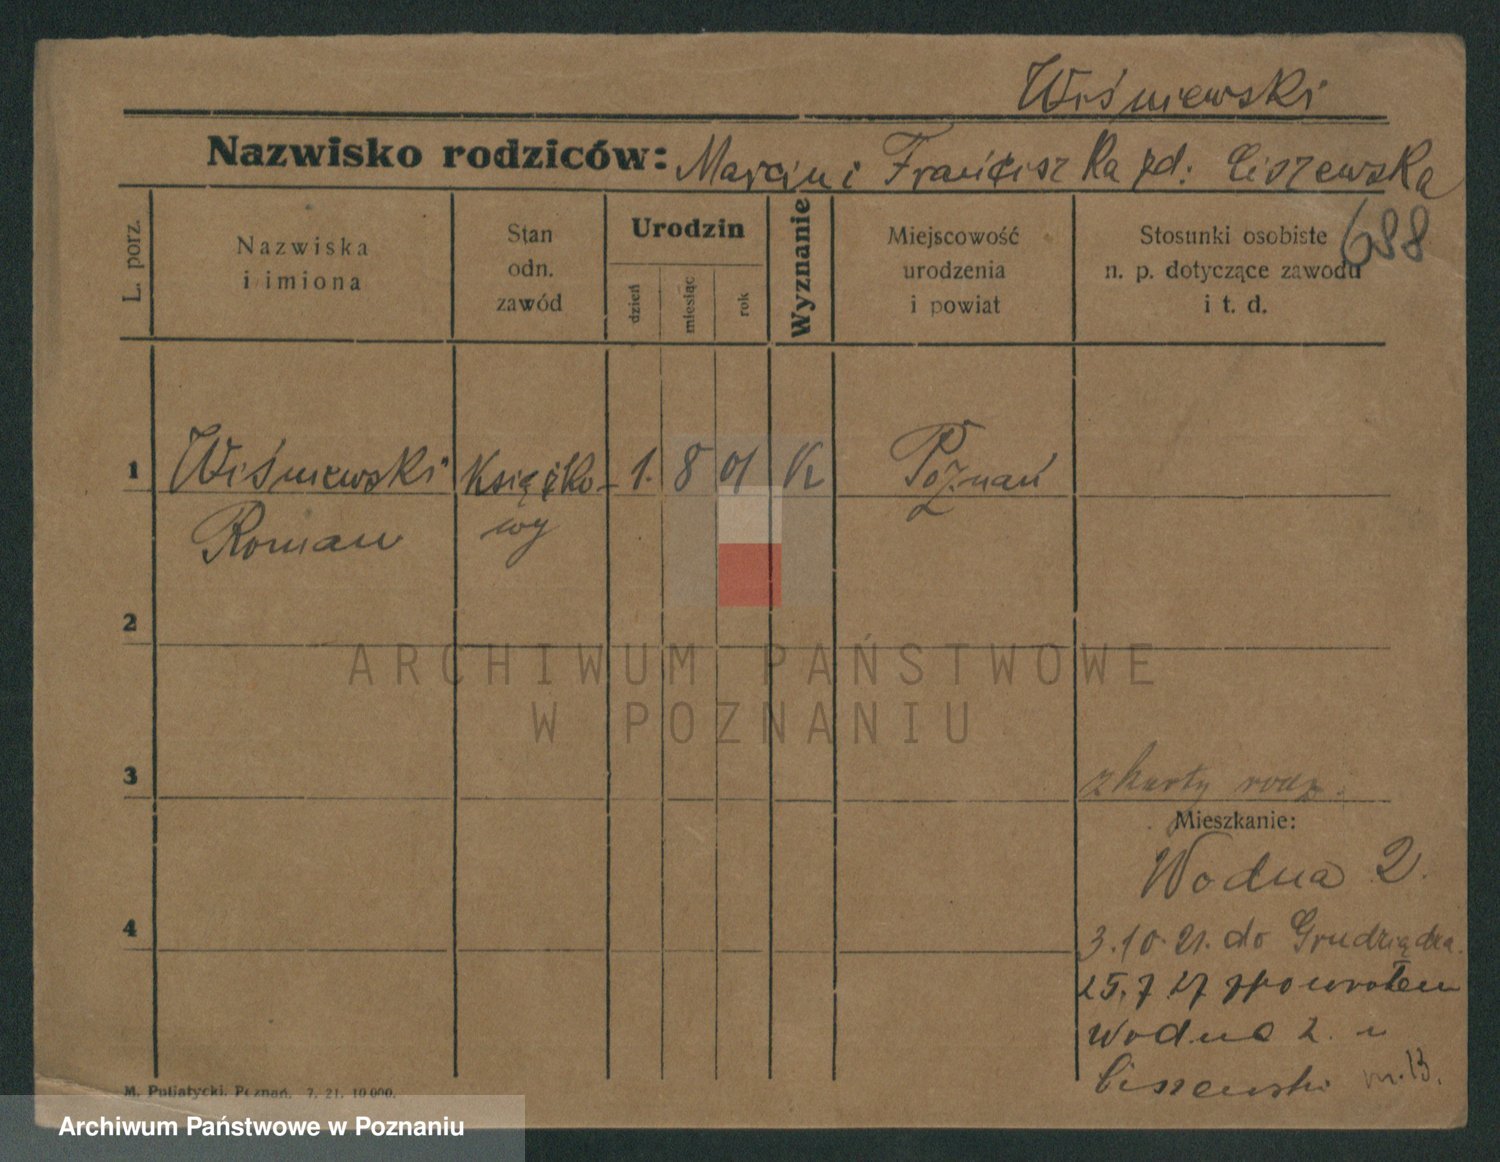 Wiśniewski
Nazwisko rodziców: Marcin i Franciszka zd: Ciszewska
688
L. porz.
Nazwiska
i imiona
Stan
odn.
zawód
Urodzin
dzień
miesiąc
rok
Wyznanie
Miejscowość
urodzenia
i powiat
Stosunki osobiste
n. p. dotyczące zawodu
i t. d.
1 Wiśniewski Książko- 1. 8 01 K Poznań
Roman wy
2
ARCHIWUM PAŃSTWOWE
W POZNANIU
3
z karty rodz.
Mieszkanie:
Wodna 2.
4
3.10.21. do Grudziądza.
25.7.27 zpowrotem
Wodna 2. u
Ciszewski m. 13.
M. Putiatycki, Poznań, 7. 21. 10 000.
Archiwum Państwowe w Poznaniu